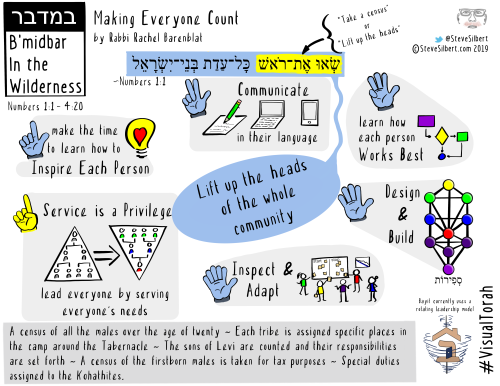 במדבר
B'midbar
In the
Wilderness
Numbers 1:1- 4:20
Making Everyone Count
by Rabbi Rachel Barenblat
"Take a census"
or
"Lift up the heads"
#SteveSilbert
©SteveSilbert.com 2019
שְׂאוּ אֶת־רֹאשׁ כָּל־עֲדַת בְּנֵי־יִשְׂרָאֵל
-Numbers 1:1
make the time
to learn how to
Inspire Each Person
Communicate
in their language
learn how
each person
Works Best
Service is a Privilege
lead everyone by serving
everyone's needs
Lift up the heads
of the whole
community
Design
&
Build
סְפִירוֹת
Inspect &
Adapt
Kayil currently uses a
rotating leadership model
#VisualTorah
A census of all the males over the age of twenty ~ Each tribe is assigned specific places in
the camp around the Tabernacle ~ The sons of Levi are counted and their responsibilities
are set forth ~ A census of the firstborn males is taken for tax purposes ~ Special duties
assigned to the Kohathites.